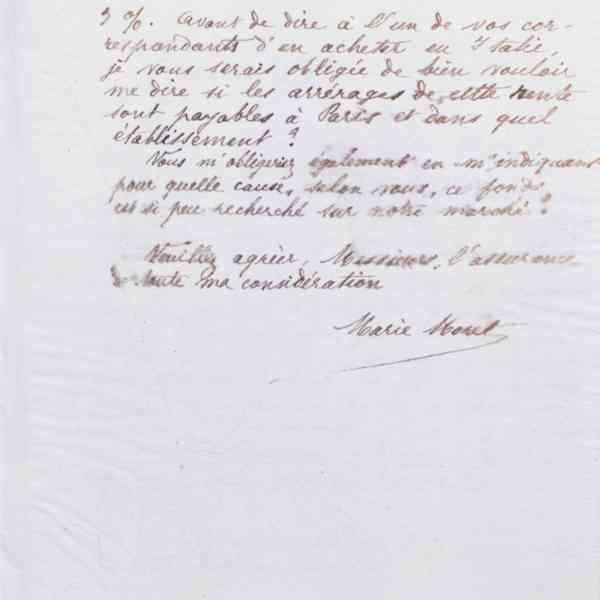 3 %. Avant de dire à l'un de vos cor-
respondants d'en acheter en Italie,
je vous serais obligée de bien vouloir
me dire si les arrérages de cette rente
sont payables à Paris et dans quel
établissement ?
Vous m'obligeriez également en m'indiquant
pour quelle cause, selon vous, ce fonds
est si peu recherché sur notre marché ?
Veuillez agréer, Messieurs, l'assurance
de toute ma considération
Marie Moret